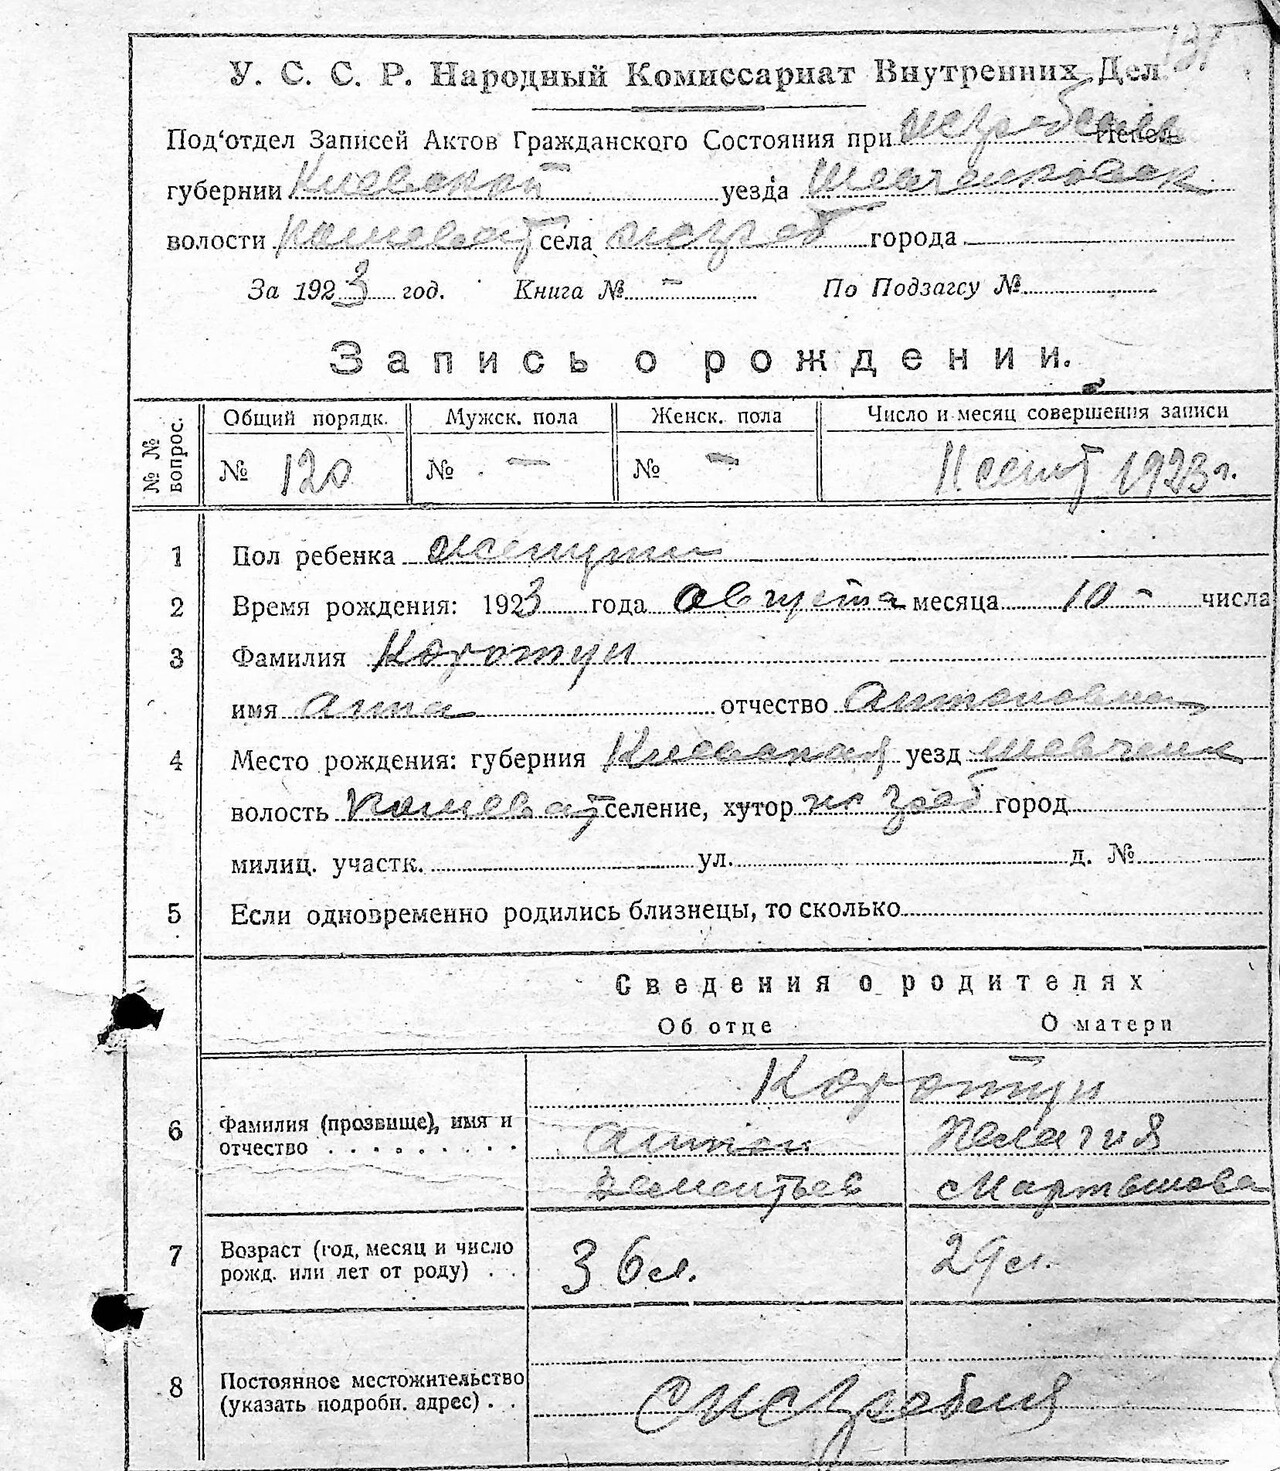 131
У. С. С. Р. Народный Комиссариат Внутренних Дел.
Под‘отдел Записей Актов Гражданского Состояния при
губернии Киевской уезда Шевченковск
волости Кошеват села города
За 1923 год. Книга № - По Подзагсу №
Запись о рождении.
№ № вопрос. Общий порядк. Мужск. пола Женск. пола Число и месяц совершения записи
№ 120 № - № - 11 сент 1923 г.
1 Пол ребенка
2 Время рождения: 1923 года Августа месяца 10 - числа
3 Фамилия Коротун
имя Анна отчество Антоновна
4 Место рождения: губерния Киевская уезд Шевченк
волость Кошеват селение, хутор город
милиц. участк. ул. д. №
5 Если одновременно родились близнецы, то сколько
Сведения о родителях
Об отце О матери
Коротун
6 Фамилия (прозвище), имя и отчество . . . . . . . . . Антон Пелагия
Дементьев Мартынова
7 Возраст (год, месяц и число рожд. или лет от роду) . . 36 л. 29 л.
8 Постоянное местожительство (указать подробн. адрес) . .